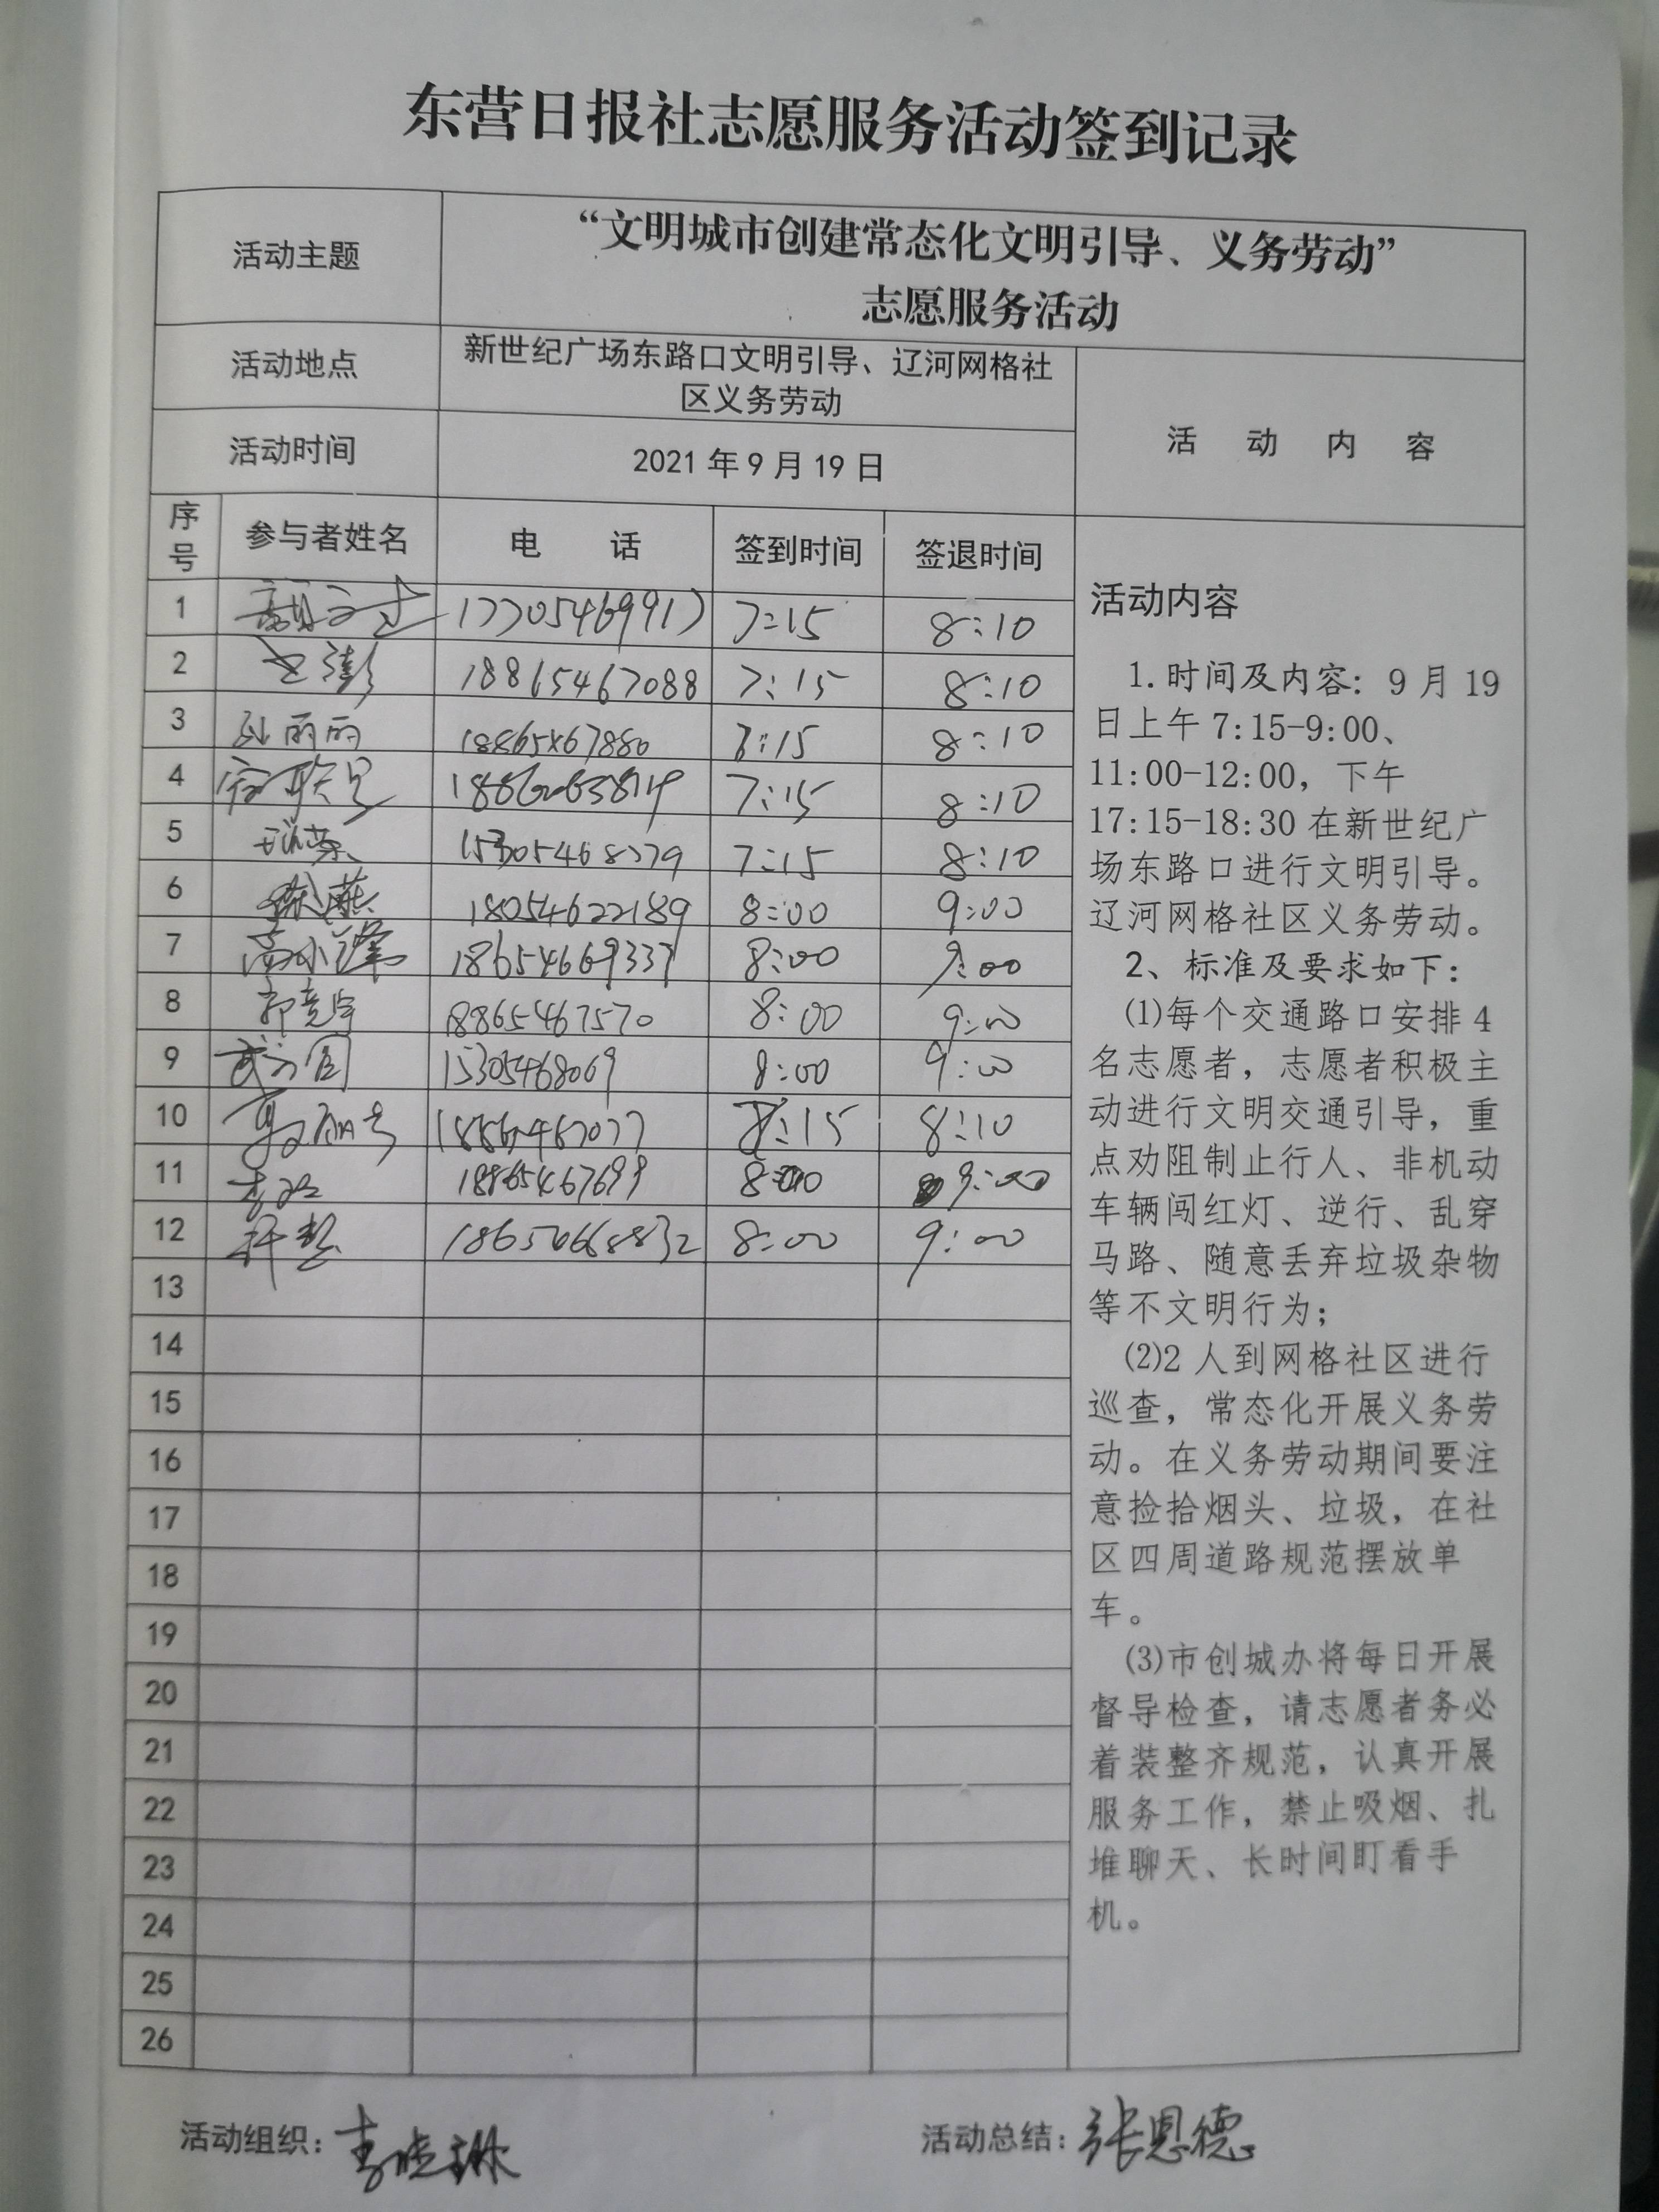 东营日报社志愿服务活动签到记录
活动主题
“文明城市创建常态化文明引导、义务劳动”
志愿服务活动
活动地点
新世纪广场东路口文明引导、辽河网格社
区义务劳动
活动时间
2021年9月19日
活 动 内 容
序号 参与者姓名 电 话 签到时间 签退时间
1 17705469917 7:15 8:10
2 18865467088 7:15 8:10
3 孙丽丽 18865467880 7:15 8:10
4 7:15 8:10
5 15305468379 7:15 8:10
6 18054622189 8:00 9:00
7 18654669337 8:00 9:00
8 郭竞宇 18865467570 8:00 9:00
9 15305468069 8:00 9:00
10 7:15 8:10
11 18865467699 8:00 9:00
12 8:00 9:00
13
14
15
16
17
18
19
20
21
22
23
24
25
26
活动内容
1.时间及内容：9月19
日上午7:15-9:00、
11:00-12:00，下午
17:15-18:30在新世纪广
场东路口进行文明引导。
辽河网格社区义务劳动。
2、标准及要求如下：
(1)每个交通路口安排4
名志愿者，志愿者积极主
动进行文明交通引导，重
点劝阻制止行人、非机动
车辆闯红灯、逆行、乱穿
马路、随意丢弃垃圾杂物
等不文明行为；
(2)2人到网格社区进行
巡查，常态化开展义务劳
动。在义务劳动期间要注
意捡拾烟头、垃圾，在社
区四周道路规范摆放单
车。
(3)市创城办将每日开展
督导检查，请志愿者务必
着装整齐规范，认真开展
服务工作，禁止吸烟、扎
堆聊天、长时间盯看手
机。
活动组织：李晓琳
活动总结：张恩德